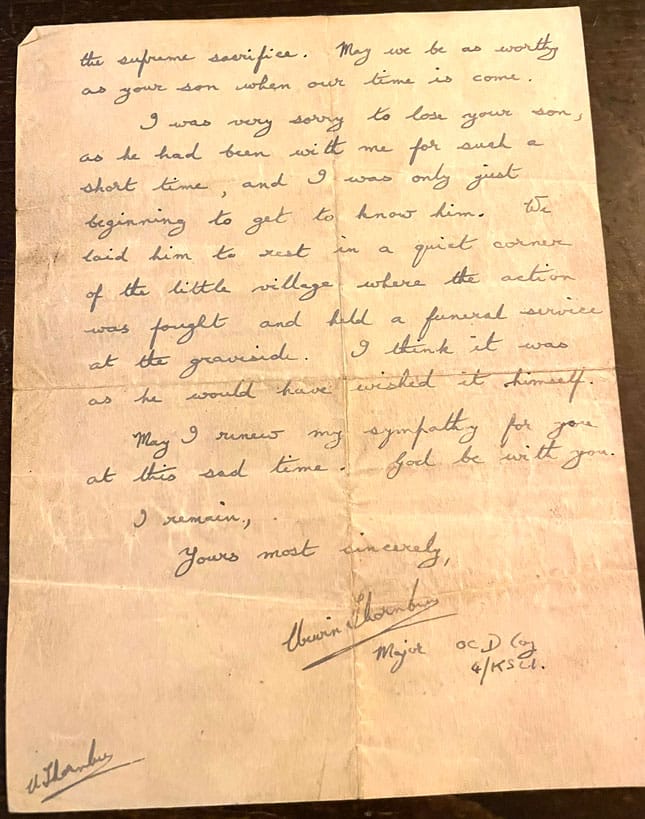 the supreme sacrifice. May we be as worthy
as your son when our time is come.
I was very sorry to lose your son,
as he had been with me for such a
short time, and I was only just
beginning to get to know him. We
laid him to rest in a quiet corner
of the little village where the action
was fought and held a funeral service
at the graveside. I think it was
as he would have wished it himself.
May I renew my sympathy for you
at this sad time. God be with you.
I remain,
Yours most sincerely,
Thornburn
Major OC D Coy
4/KSLI.
U Thornburn